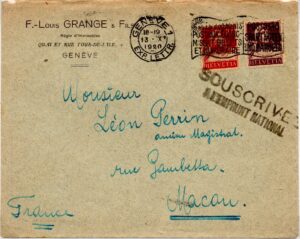 F.-LOUIS GRANGE & FILS
Régie d'Immeubles
QUAI ET RUE TOUR-DE-L'ILE
GENÈVE
GENÈVE 1
18-19
13.X
1920
EXP. LETTR.
HELVETIA
HELVETIA
SOUSCRIVEZ
A L'EMPRUNT NATIONAL
Monsieur
Léon Perrin
ancien Magistrat.
rue Gambetta
Macon.
France